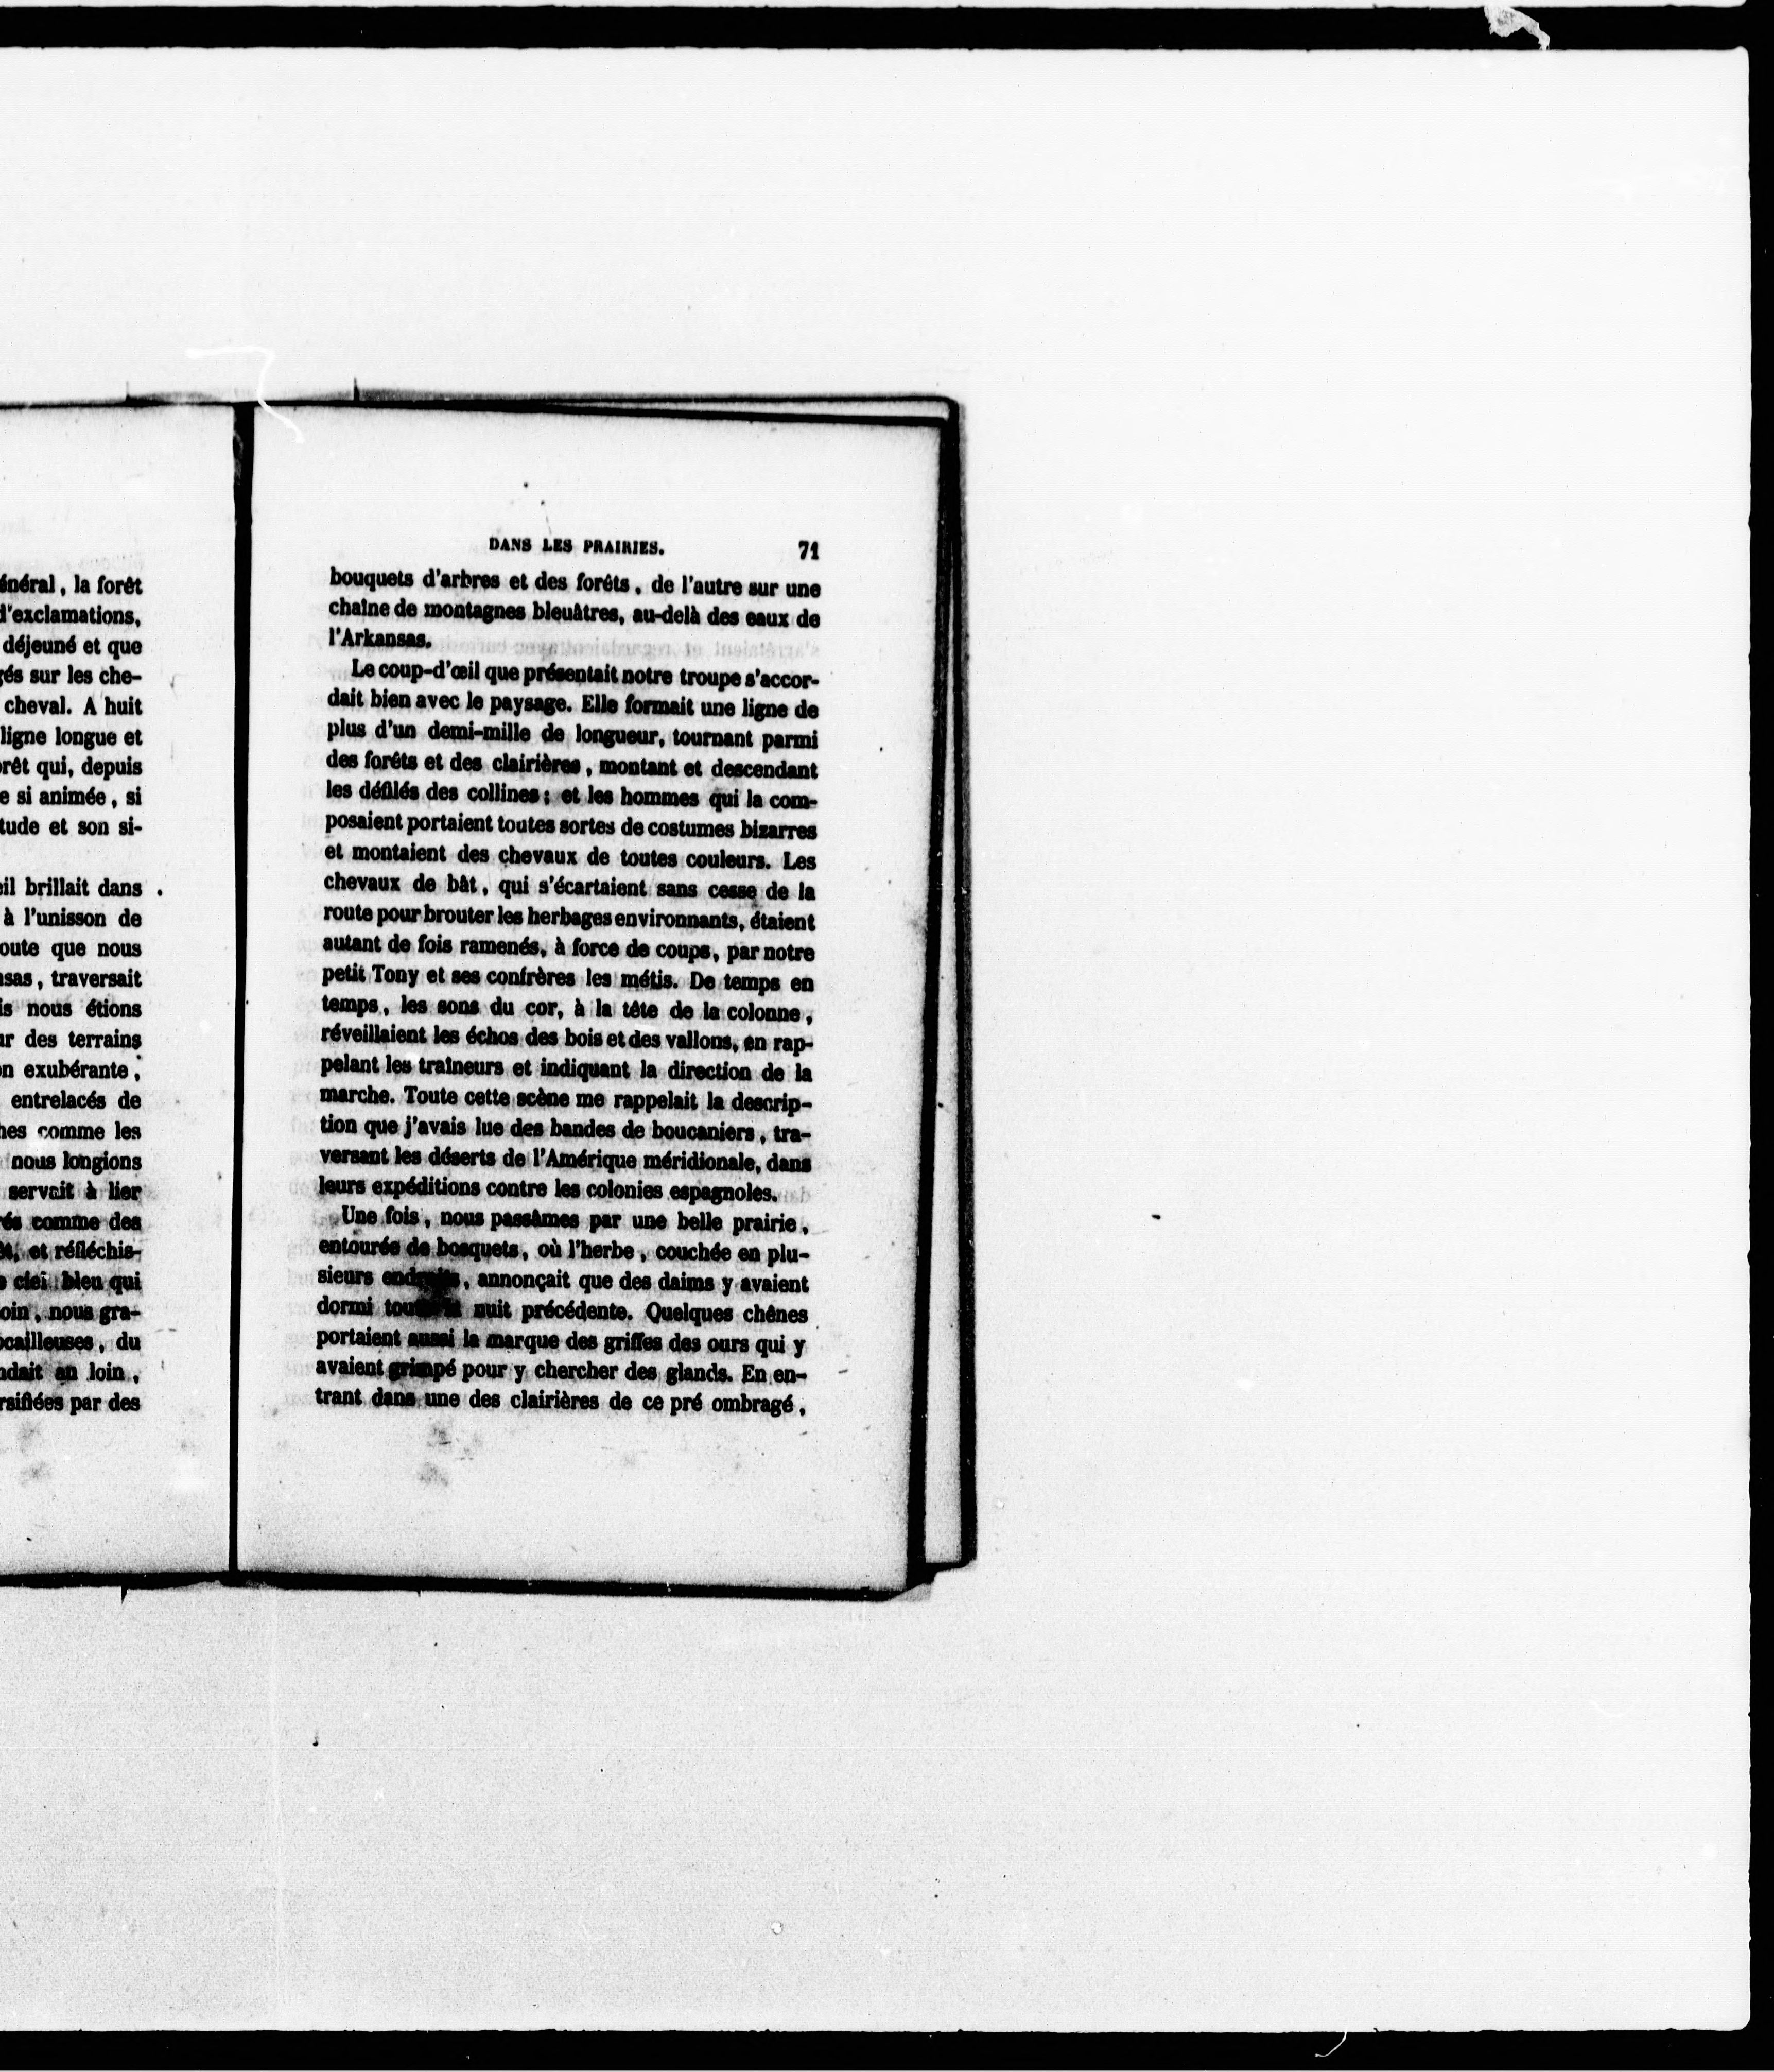 énéral, la forêt
d'exclamations,
déjeuné et que
gés sur les che-
cheval. A huit
ligne longue et
orêt qui, depuis
e si animée, si
tude et son si-
eil brillait dans
à l'unisson de
oute que nous
nsas, traversait
is nous étions
ur des terrains
on exubérante,
entrelacés de
nes comme les
nous longions
servait à lier
rés comme des
et réfléchis-
ciel bleu qui
oin, nous gra-
ocailleuses, du
ndait au loin,
rsifiées par des
DANS LES PRAIRIES. 71
bouquets d'arbres et des forêts, de l'autre sur une
chaîne de montagnes bleuâtres, au-delà des eaux de
l'Arkansas.
Le coup-d'œil que présentait notre troupe s'accor-
dait bien avec le paysage. Elle formait une ligne de
plus d'un demi-mille de longueur, tournant parmi
des forêts et des clairières, montant et descendant
les défilés des collines; et les hommes qui la com-
posaient portaient toutes sortes de costumes bizarres
et montaient des chevaux de toutes couleurs. Les
chevaux de bât, qui s'écartaient sans cesse de la
route pour brouter les herbages environnants, étaient
autant de fois ramenés, à force de coups, par notre
petit Tony et ses confrères les métis. De temps en
temps, les sons du cor, à la tête de la colonne,
réveillaient les échos des bois et des vallons, en rap-
pelant les traîneurs et indiquant la direction de la
marche. Toute cette scène me rappelait la descrip-
tion que j'avais lue des bandes de boucaniers, tra-
versant les déserts de l'Amérique méridionale, dans
leurs expéditions contre les colonies espagnoles.
Une fois, nous passâmes par une belle prairie,
entourée de bosquets, où l'herbe, couchée en plu-
sieurs endroits, annonçait que des daims y avaient
dormi nuit précédente. Quelques chênes
portaient aussi la marque des griffes des ours qui y
avaient grimpé pour y chercher des glands. En en-
trant dans une des clairières de ce pré ombragé,